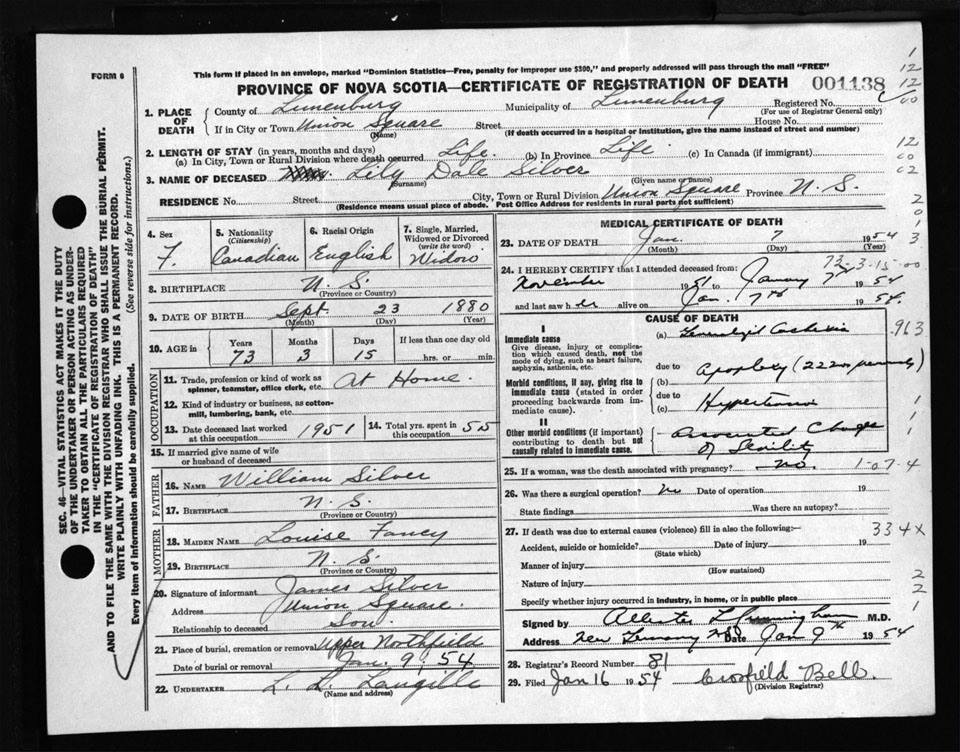 FORM 6
This form if placed in an envelope, marked "Dominion Statistics—Free, penalty for improper use $300," and properly addressed will pass through the mail "FREE"
PROVINCE OF NOVA SCOTIA—CERTIFICATE OF REGISTRATION OF DEATH 001138
1. PLACE OF DEATH County of Lunenburg Municipality of Lunenburg Registered No. (For use of Registrar General only)
If in City or Town Union Square (Name) Street House No.
(If death occurred in a hospital or institution, give the name instead of street and number)
2. LENGTH OF STAY (in years, months and days)
(a) In City, Town or Rural Division where death occurred Life. (b) In Province Life (c) In Canada (if immigrant)
3. NAME OF DECEASED Lily Dale Silver
(Surname) (Given name or names)
RESIDENCE No. Street City, Town or Rural Division Union Square Province N. S.
(Residence means usual place of abode. Post Office Address for residents in rural parts not sufficient)
4. Sex F.
5. Nationality (Citizenship) Canadian
6. Racial Origin English
7. Single, Married, Widowed or Divorced (write the word) Widow
8. BIRTHPLACE N. S.
(Province or Country)
9. DATE OF BIRTH Sept. 23 1880
(Month) (Day) (Year)
10. AGE in Years 73 Months 3 Days 15 If less than one day old hrs. or min.
OCCUPATION
11. Trade, profession or kind of work as spinner, teamster, office clerk, etc. At Home.
12. Kind of industry or business, as cotton-mill, lumbering, bank, etc.
13. Date deceased last worked at this occupation 1951 14. Total yrs. spent in this occupation 50
15. If married give name of wife or husband of deceased
FATHER
16. NAME William Silver
17. BIRTHPLACE N. S.
(Province or Country)
MOTHER
18. MAIDEN NAME Louise Fancy
19. BIRTHPLACE N. S.
(Province or Country)
20. Signature of informant James Silver
Address Union Square.
Relationship to deceased Son.
21. Place of burial, cremation or removal Upper Northfield
Date of burial or removal Jan. 9, 54
22. UNDERTAKER L. L. Langille
(Name and address)
MEDICAL CERTIFICATE OF DEATH
23. DATE OF DEATH Jan. 7 1954
(Month) (Day) (Year)
24. I HEREBY CERTIFY that I attended deceased from:
November 1951 to 7th 1954
and last saw her alive on Jan. 7th 1954.
CAUSE OF DEATH
I
Immediate cause
Give disease, injury or complication which caused death, not the mode of dying, such as heart failure, asphyxia, asthenia, etc.
(a)
due to
Morbid conditions, if any, giving rise to immediate cause (stated in order proceeding backwards from immediate cause).
(b) Apoplexy
due to
(c)
II
Other morbid conditions (if important) contributing to death but not causally related to immediate cause.
of Senility
25. If a woman, was the death associated with pregnancy? no.
26. Was there a surgical operation? no Date of operation 19
State findings Was there an autopsy?
27. If death was due to external causes (violence) fill in also the following:—
Accident, suicide or homicide? Date of injury 19
(State which)
Manner of injury
(How sustained)
Nature of injury
Specify whether injury occurred in Industry, in home, or in public place
Signed by M.D.
Address New Germany NS Date Jan 9th 1954
28. Registrar's Record Number 81
29. Filed Jan 16 1954 Crofield Bell
(Division Registrar)
963
1-07-4
334X
SEC. 46—VITAL STATISTICS ACT MAKES IT THE DUTY
OF THE UNDERTAKER OR PERSON ACTING AS UNDER-
TAKER TO OBTAIN ALL THE PARTICULARS REQUIRED
IN THE "CERTIFICATE OF REGISTRATION OF DEATH"
AND TO FILE THE SAME WITH THE DIVISION REGISTRAR WHO SHALL ISSUE THE BURIAL PERMIT.
WRITE PLAINLY WITH UNFADING INK. THIS IS A PERMANENT RECORD.
Every item of information should be carefully supplied. (See reverse side for instructions.)